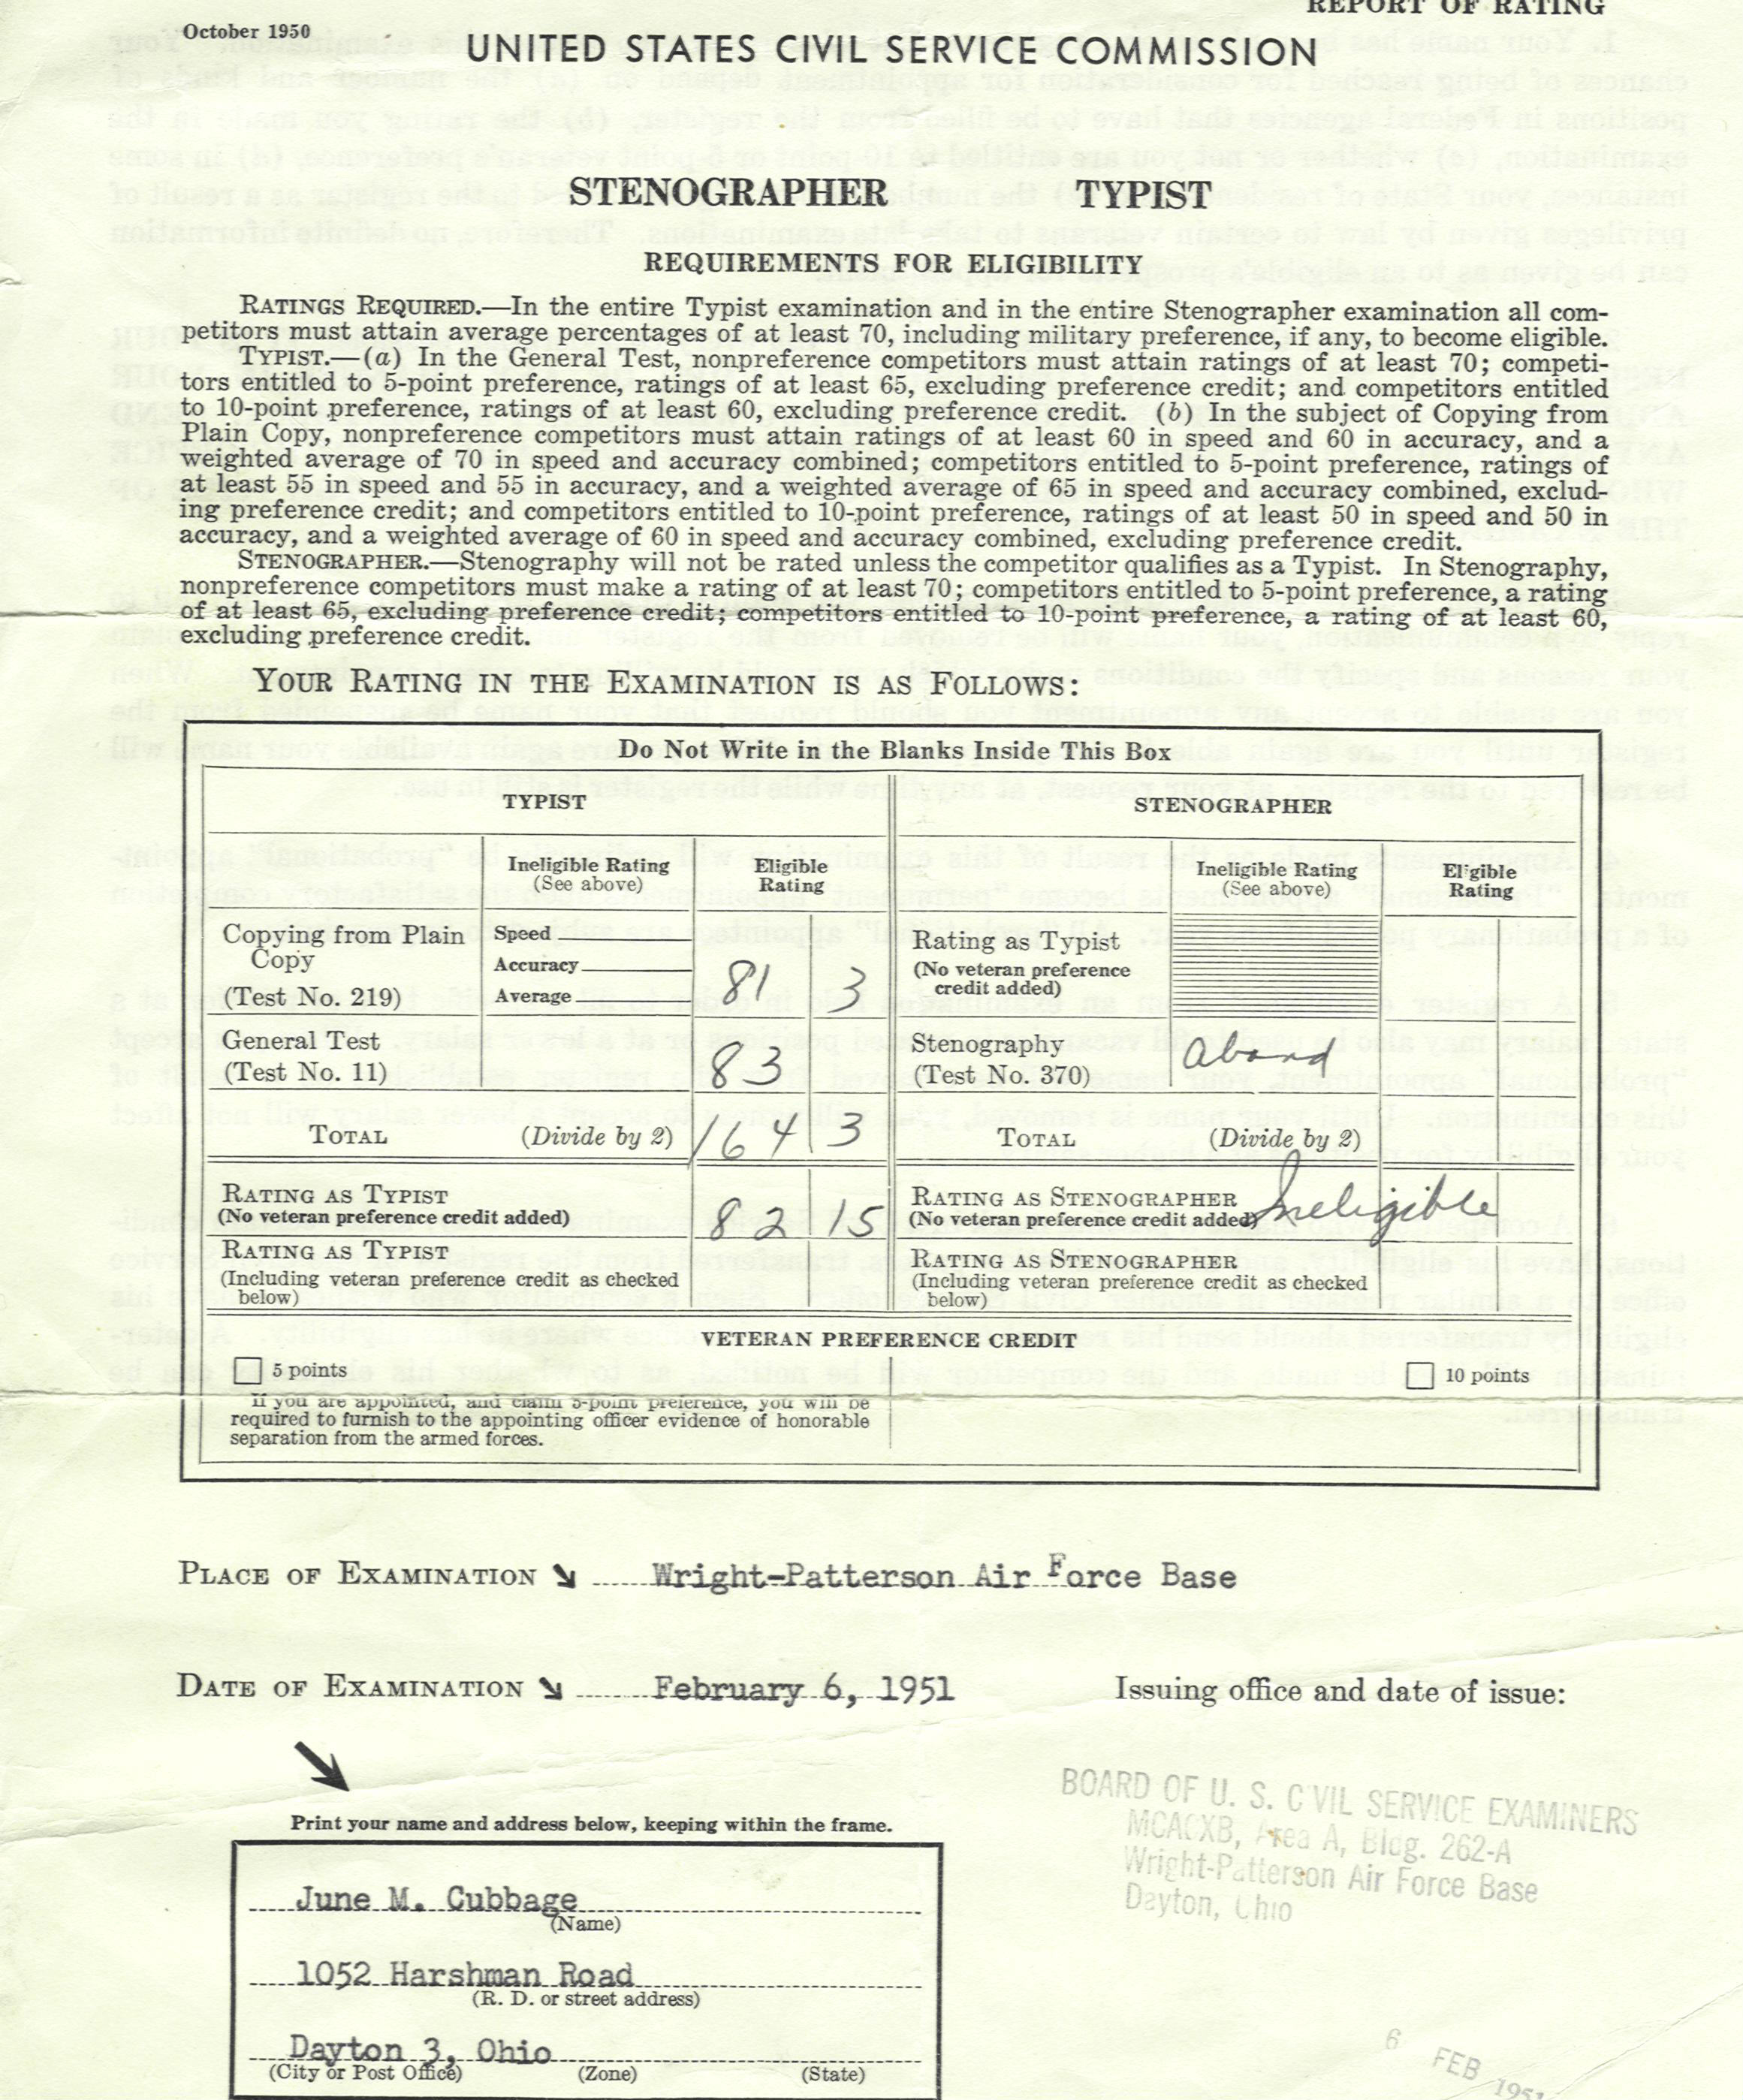 REPORT OF RATING
October 1950
UNITED STATES CIVIL SERVICE COMMISSION
STENOGRAPHER TYPIST
REQUIREMENTS FOR ELIGIBILITY
RATINGS REQUIRED.—In the entire Typist examination and in the entire Stenographer examination all com-
petitors must attain average percentages of at least 70, including military preference, if any, to become eligible.
TYPIST.—(a) In the General Test, nonpreference competitors must attain ratings of at least 70; competi-
tors entitled to 5-point preference, ratings of at least 65, excluding preference credit; and competitors entitled
to 10-point preference, ratings of at least 60, excluding preference credit. (b) In the subject of Copying from
Plain Copy, nonpreference competitors must attain ratings of at least 60 in speed and 60 in accuracy, and a
weighted average of 70 in speed and accuracy combined; competitors entitled to 5-point preference, ratings of
at least 55 in speed and 55 in accuracy, and a weighted average of 65 in speed and accuracy combined, exclud-
ing preference credit; and competitors entitled to 10-point preference, ratings of at least 50 in speed and 50 in
accuracy, and a weighted average of 60 in speed and accuracy combined, excluding preference credit.
STENOGRAPHER.—Stenography will not be rated unless the competitor qualifies as a Typist. In Stenography,
nonpreference competitors must make a rating of at least 70; competitors entitled to 5-point preference, a rating
of at least 65, excluding preference credit; competitors entitled to 10-point preference, a rating of at least 60,
excluding preference credit.
YOUR RATING IN THE EXAMINATION IS AS FOLLOWS:
Do Not Write in the Blanks Inside This Box
TYPIST
Ineligible Rating
(See above)
Eligible
Rating
Copying from Plain
Copy
(Test No. 219)
Speed
Accuracy
Average
81 3
General Test
(Test No. 11)
83
TOTAL (Divide by 2) 164 3
RATING AS TYPIST
(No veteran preference credit added)
82 15
RATING AS TYPIST
(Including veteran preference credit as checked
below)
STENOGRAPHER
Ineligible Rating
(See above)
Eligible
Rating
Rating as Typist
(No veteran preference
credit added)
Stenography
(Test No. 370)
aband
TOTAL (Divide by 2)
RATING AS STENOGRAPHER
(No veteran preference credit added)
Ineligible
RATING AS STENOGRAPHER
(Including veteran preference credit as checked
below)
VETERAN PREFERENCE CREDIT
5 points
10 points
If you are appointed, and claim 5-point preference, you will be
required to furnish to the appointing officer evidence of honorable
separation from the armed forces.
PLACE OF EXAMINATION Wright-Patterson Air Force Base
DATE OF EXAMINATION February 6, 1951
Issuing office and date of issue:
BOARD OF U. S. CIVIL SERVICE EXAMINERS
MCACXB, Area A, Bldg. 262-A
Wright-Patterson Air Force Base
Dayton, Ohio
Print your name and address below, keeping within the frame.
June M. Cubbage
(Name)
1052 Harshman Road
(R. D. or street address)
Dayton 3, Ohio
(City or Post Office) (Zone) (State)
6 FEB 1951